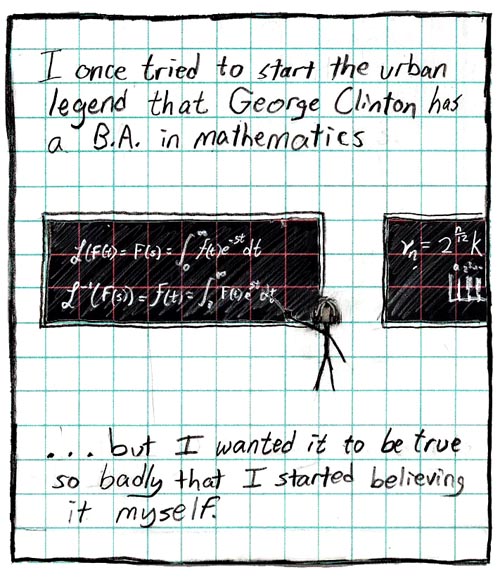 I once tried to start the urban
legend that George Clinton has
a B.A. in mathematics
ℒ(F(t)) = F(s) = ∫₀^∞ f(t)e^-st dt
ℒ⁻¹(F(s)) = f(t) = ∫ F(t)e^st
γₙ = 2^(n/12) k
... but I wanted it to be true
so badly that I started believing
it myself.